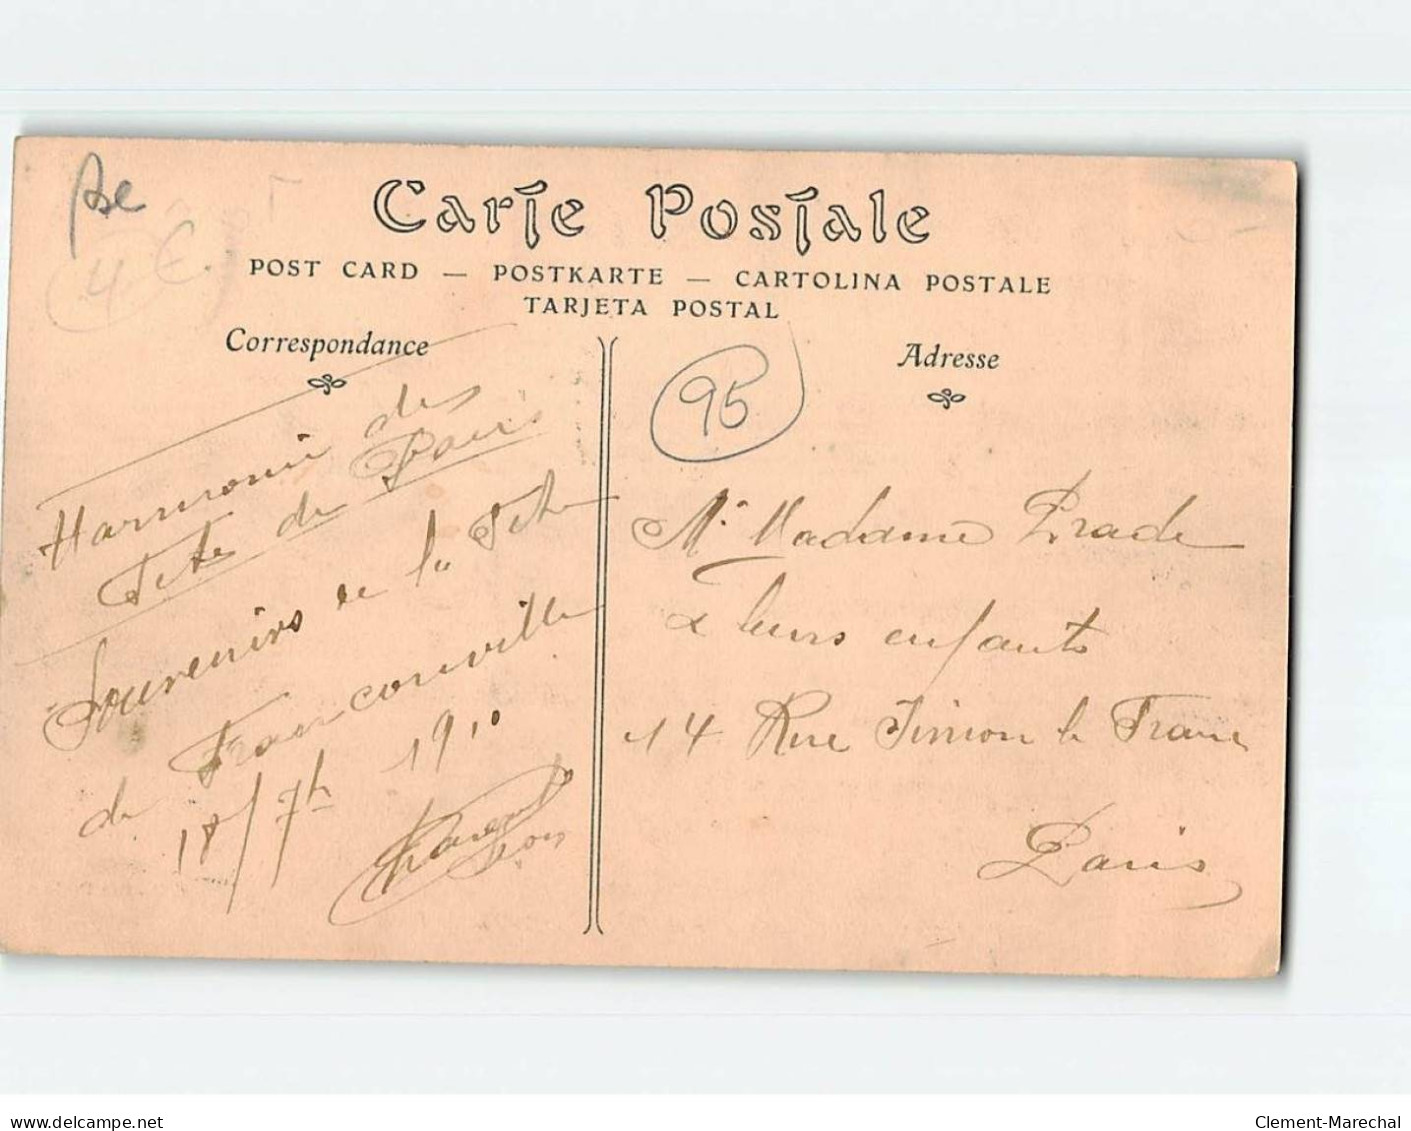 Carte Postale
POST CARD — POSTKARTE — CARTOLINA POSTALE
TARJETA POSTAL
Correspondance
Adresse
4 €
95
Harmonie des
Fetes de Paris
Souvenirs de la Fete
de Franconville
18/7bre 1910
Mr Madame Prade
& leurs enfants
14 Rue Simon le Franc
Paris
www.delcampe.net
Clement-Marechal